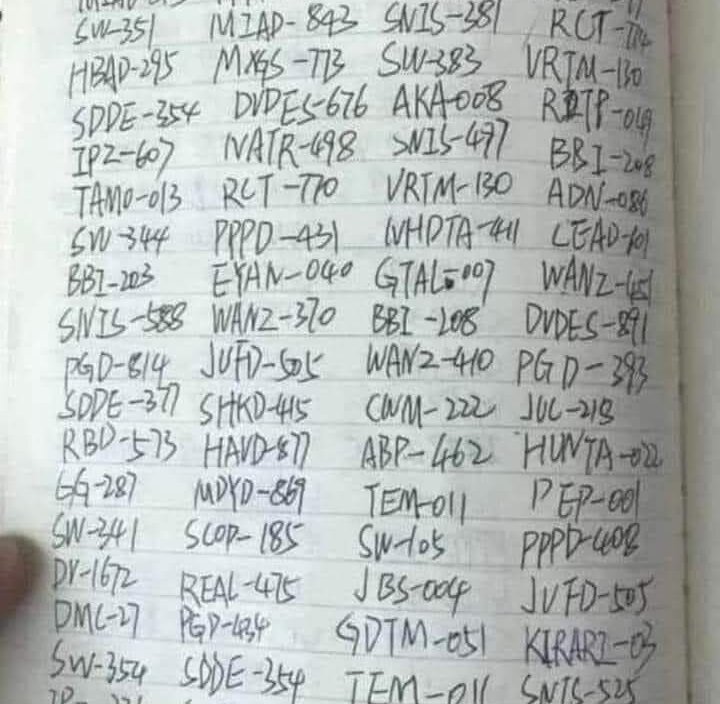 SW-351 MIAD-843 SNIS-381 RCT-714
HBAD-295 MXGS-773 SW-383 VRTM-130
SDDE-354 DVDES-676 AKA-008 RITP-049
IPZ-607 NATR-498 SNIS-497 BBI-208
TAMO-013 RCT-770 VRTM-130 ADN-086
SW-344 PPPD-431 NHDTA-411 LEAD-101
BBI-203 EYAN-040 GTAL-007 WANZ-451
SNIS-588 WANZ-370 BBI-208 DVDES-891
PGD-814 JUFD-505 WANZ-410 PGD-393
SDDE-377 SHKD-415 CWM-222 JUC-213
RBD-573 HAVD-877 ABP-462 HUNTA-022
GG-287 MDYD-869 TEM-011 PEP-001
SW-341 SCOP-185 SW-105 PPPD-408
DV-1672 REAL-475 JBS-004 JUFD-505
DMC-27 PGD-434 GDTM-051 KIRARI-03
SW-354 SDDE-354 TEM-011 SNIS-525